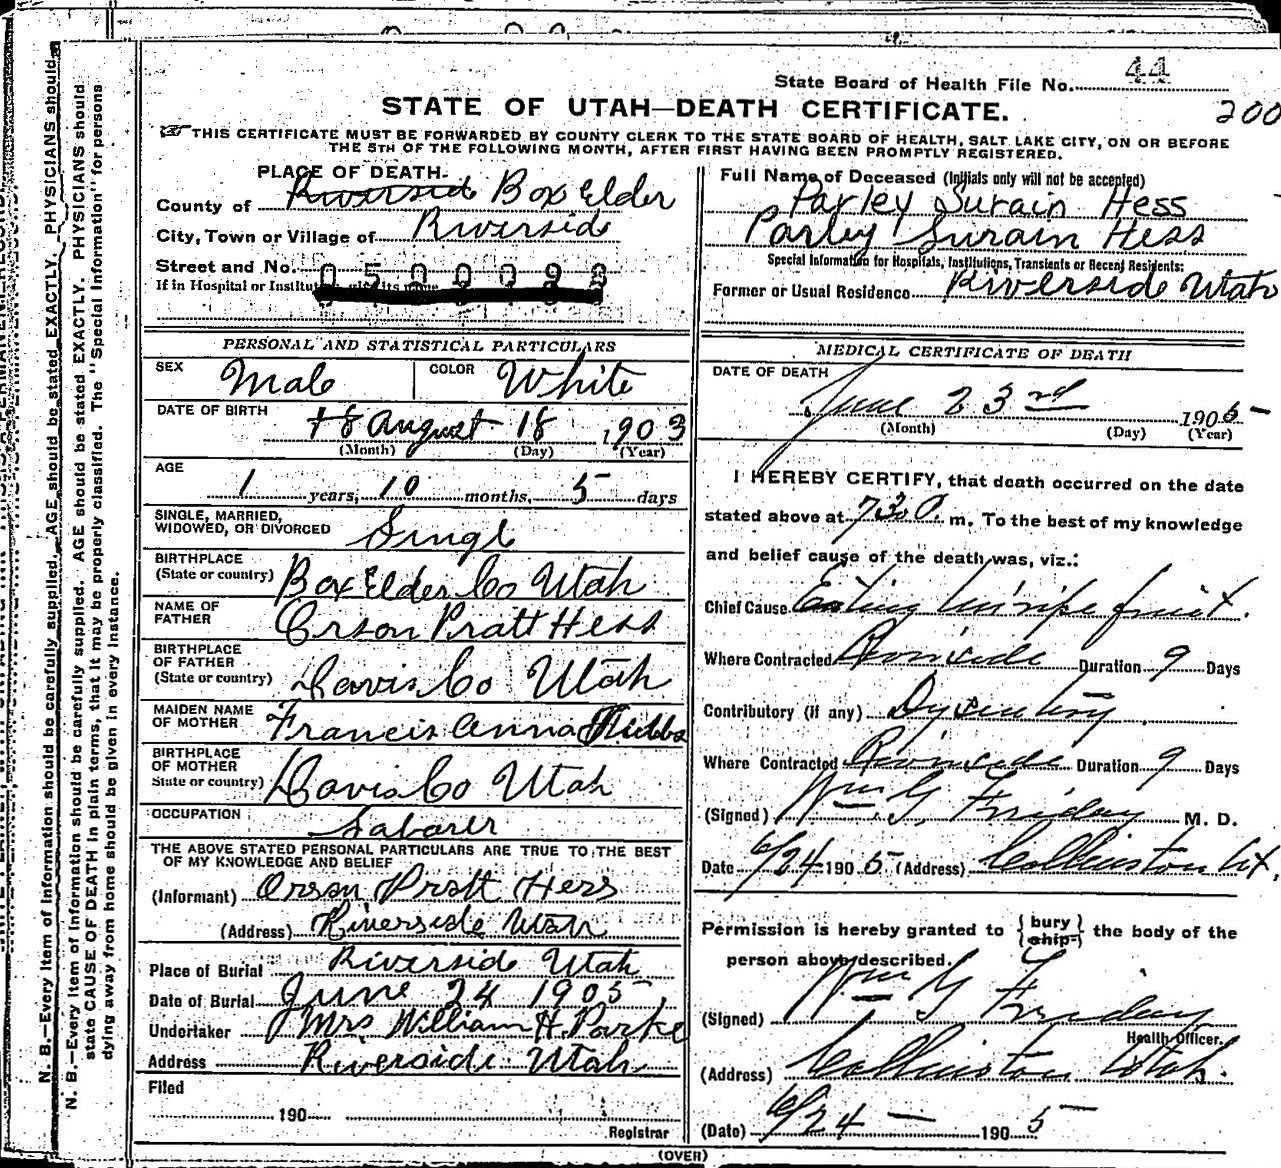 State Board of Health File No. 44
STATE OF UTAH—DEATH CERTIFICATE.
200
THIS CERTIFICATE MUST BE FORWARDED BY COUNTY CLERK TO THE STATE BOARD OF HEALTH, SALT LAKE CITY, ON OR BEFORE
THE 5TH OF THE FOLLOWING MONTH, AFTER FIRST HAVING BEEN PROMPTLY REGISTERED.
PLACE OF DEATH-
County of Riverside Box Elder
City, Town or Village of Riverside
Street and No. 0500098
If in Hospital or Institut
PERSONAL AND STATISTICAL PARTICULARS
SEX Male COLOR White
DATE OF BIRTH 18 August 18 1903
(Month) (Day) (Year)
AGE
1 years, 10 months, 5 days
SINGLE, MARRIED,
WIDOWED, OR DIVORCED Singl
BIRTHPLACE
(State or country) Box Elder Co Utah
NAME OF
FATHER Orson Pratt Hess
BIRTHPLACE
OF FATHER
(State or country) Davis Co Utah
MAIDEN NAME
OF MOTHER Francis Anna
BIRTHPLACE
OF MOTHER
State or country) Davis Co Utah
OCCUPATION
Labarer
THE ABOVE STATED PERSONAL PARTICULARS ARE TRUE TO THE BEST
OF MY KNOWLEDGE AND BELIEF
(Informant) Orson Pratt Hess
(Address) Riverside Utah
Place of Burial Riverside Utah
Date of Burial June 24 1905
Undertaker Mrs William H. Parke
Address Riverside Utah
Filed
190
Registrar
Full Name of Deceased (Initials only will not be accepted)
Parley Surain Hess
Parley Surain Hess
Special Information for Hospitals, Institutions, Transients or Recent Residents:
Former or Usual Residence Riverside Utah
MEDICAL CERTIFICATE OF DEATH
DATE OF DEATH
June 23rd 1905
(Month) (Day) (Year)
I HEREBY CERTIFY, that death occurred on the date
stated above at 730 m. To the best of my knowledge
and belief cause of the death was, viz.:
Chief Cause Eating Unripe fruit.
Where Contracted Riverside Duration 9 Days
Contributory (if any) Dysentery
Where Contracted Riverside Duration 9 Days
(Signed) Wm G Friday M. D.
Date 6/24 1905 (Address) Collinston Ut,
Permission is hereby granted to { bury
ship } the body of the
person above described.
(Signed) Wm G Friday
Health Officer.
(Address) Collinston Utah.
(Date) 6/24 — 1905
(OVER)
N. B.—Every item of information should be carefully supplied. AGE should be stated EXACTLY. PHYSICIANS should
N. B.—Every item of information should be carefully supplied. AGE should be stated EXACTLY. PHYSICIANS should
state CAUSE OF DEATH in plain terms, that it may be properly classified. The "Special Information" for persons
dying away from home should be given in every instance.